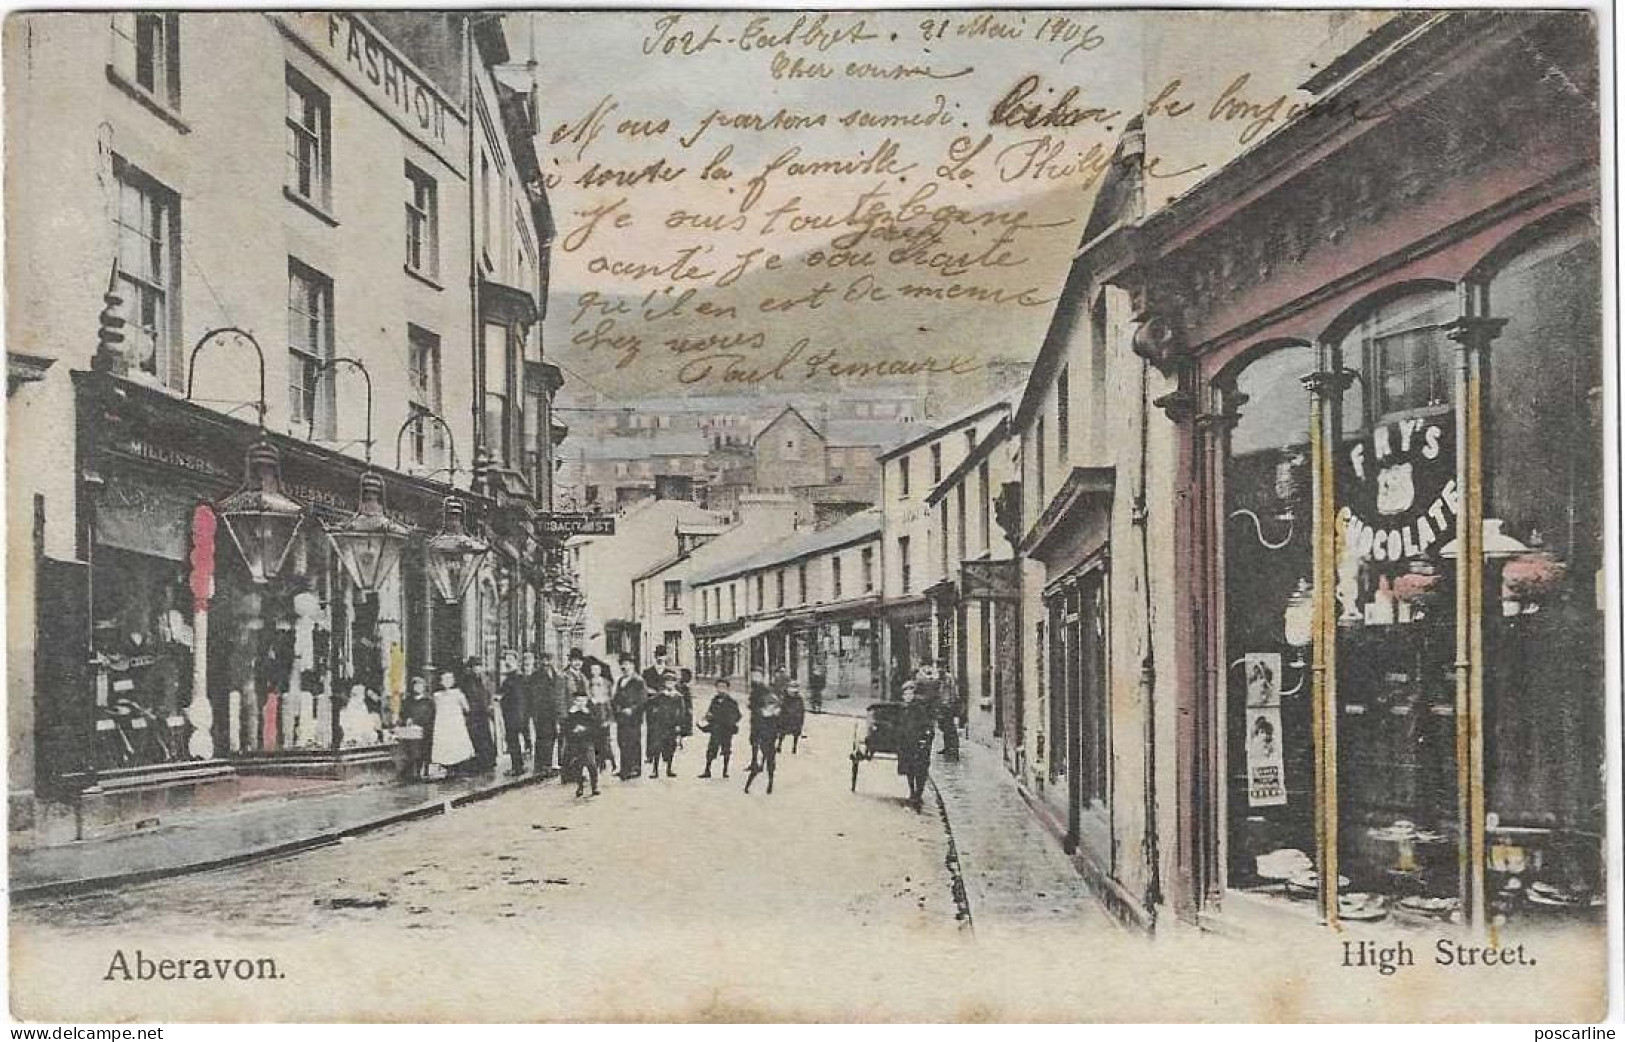 Port-Talbot. 21 Mai 1906
Cher cousin
Nous partons samedi. bonjour
à toute la famille. La
Je suis toujours en bonne
santé Je souhaite
qu'il en est de même
chez vous
Paul Lemaire
FASHION
MILLINERS
TOBACCONIST
FRY'S
CHOCOLATE
Aberavon.
High Street.
© delcampe.net
poscarline